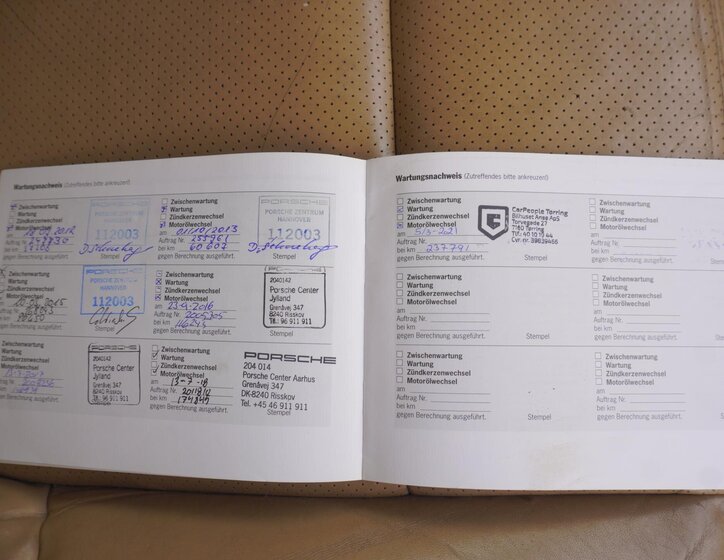 Wartungsnachweis (Zutreffendes bitte ankreuzen!)
Zwischenwartung
Wartung
Zündkerzenwechsel
Motorölwechsel
am
Auftrag Nr.
bei km
gegen Berechnung ausgeführt.
PORSCHE
PORSCHE ZENTRUM
HANNOVER
112003
Stempel
Zwischenwartung
Wartung
Zündkerzenwechsel
Motorölwechsel
am 01/10/2013
Auftrag Nr. 255961
bei km 60607
gegen Berechnung ausgeführt.
PORSCHE
PORSCHE ZENTRUM
HANNOVER
112003
Stempel
Zwischenwartung
Wartung
Zündkerzenwechsel
Motorölwechsel
gegen Berechnung ausgeführt.
PORSCHE
PORSCHE ZENTRUM
HANNOVER
112003
Stempel
Zwischenwartung
Wartung
Zündkerzenwechsel
Motorölwechsel
am 23-9-2016
Auftrag Nr. 2005305
bei km 116245
gegen Berechnung ausgeführt.
2040142
Porsche Center
Jylland
Grenåvej 347
8240 Risskov
Tlf.: 96 911 911
Stempel
Zwischenwartung
Wartung
Zündkerzenwechsel
Motorölwechsel
gegen Berechnung ausgeführt.
2040142
Porsche Center
Jylland
Grenåvej 347
8240 Risskov
Tlf.: 96 911 911
Stempel
Zwischenwartung
Wartung
Zündkerzenwechsel
Motorölwechsel
am 13-7-18
Auftrag Nr.
bei km 174849
gegen Berechnung ausgeführt.
PORSCHE
204 014
Porsche Center Aarhus
Grenåvej 347
DK-8240 Risskov
Tel. +45 46 911 911
Stempel
Wartungsnachweis (Zutreffendes bitte ankreuzen!)
Zwischenwartung
Wartung
Zündkerzenwechsel
Motorölwechsel
am
Auftrag Nr.
bei km 237791
gegen Berechnung ausgeführt.
CarPeople Tørring
Bilhuset Ansø ApS
Torvegade 27
7160 Tørring
Tlf.: 40 10 19 44
Cvr.nr. 39039456
Stempel
Zwischenwartung
Wartung
Zündkerzenwechsel
Motorölwechsel
am
Auftrag Nr.
bei km
gegen Berechnung ausgeführt.
Stempel
Zwischenwartung
Wartung
Zündkerzenwechsel
Motorölwechsel
am
Auftrag Nr.
bei km
gegen Berechnung ausgeführt.
Stempel
Zwischenwartung
Wartung
Zündkerzenwechsel
Motorölwechsel
am
Auftrag Nr.
bei km
gegen Berechnung ausgeführt.
Stempel
Zwischenwartung
Wartung
Zündkerzenwechsel
Motorölwechsel
am
Auftrag Nr.
bei km
gegen Berechnung ausgeführt.
Stempel
Zwischenwartung
Wartung
Zündkerzenwechsel
Motorölwechsel
am
Auftrag Nr.
bei km
gegen Berechnung ausgeführt.
Stempel